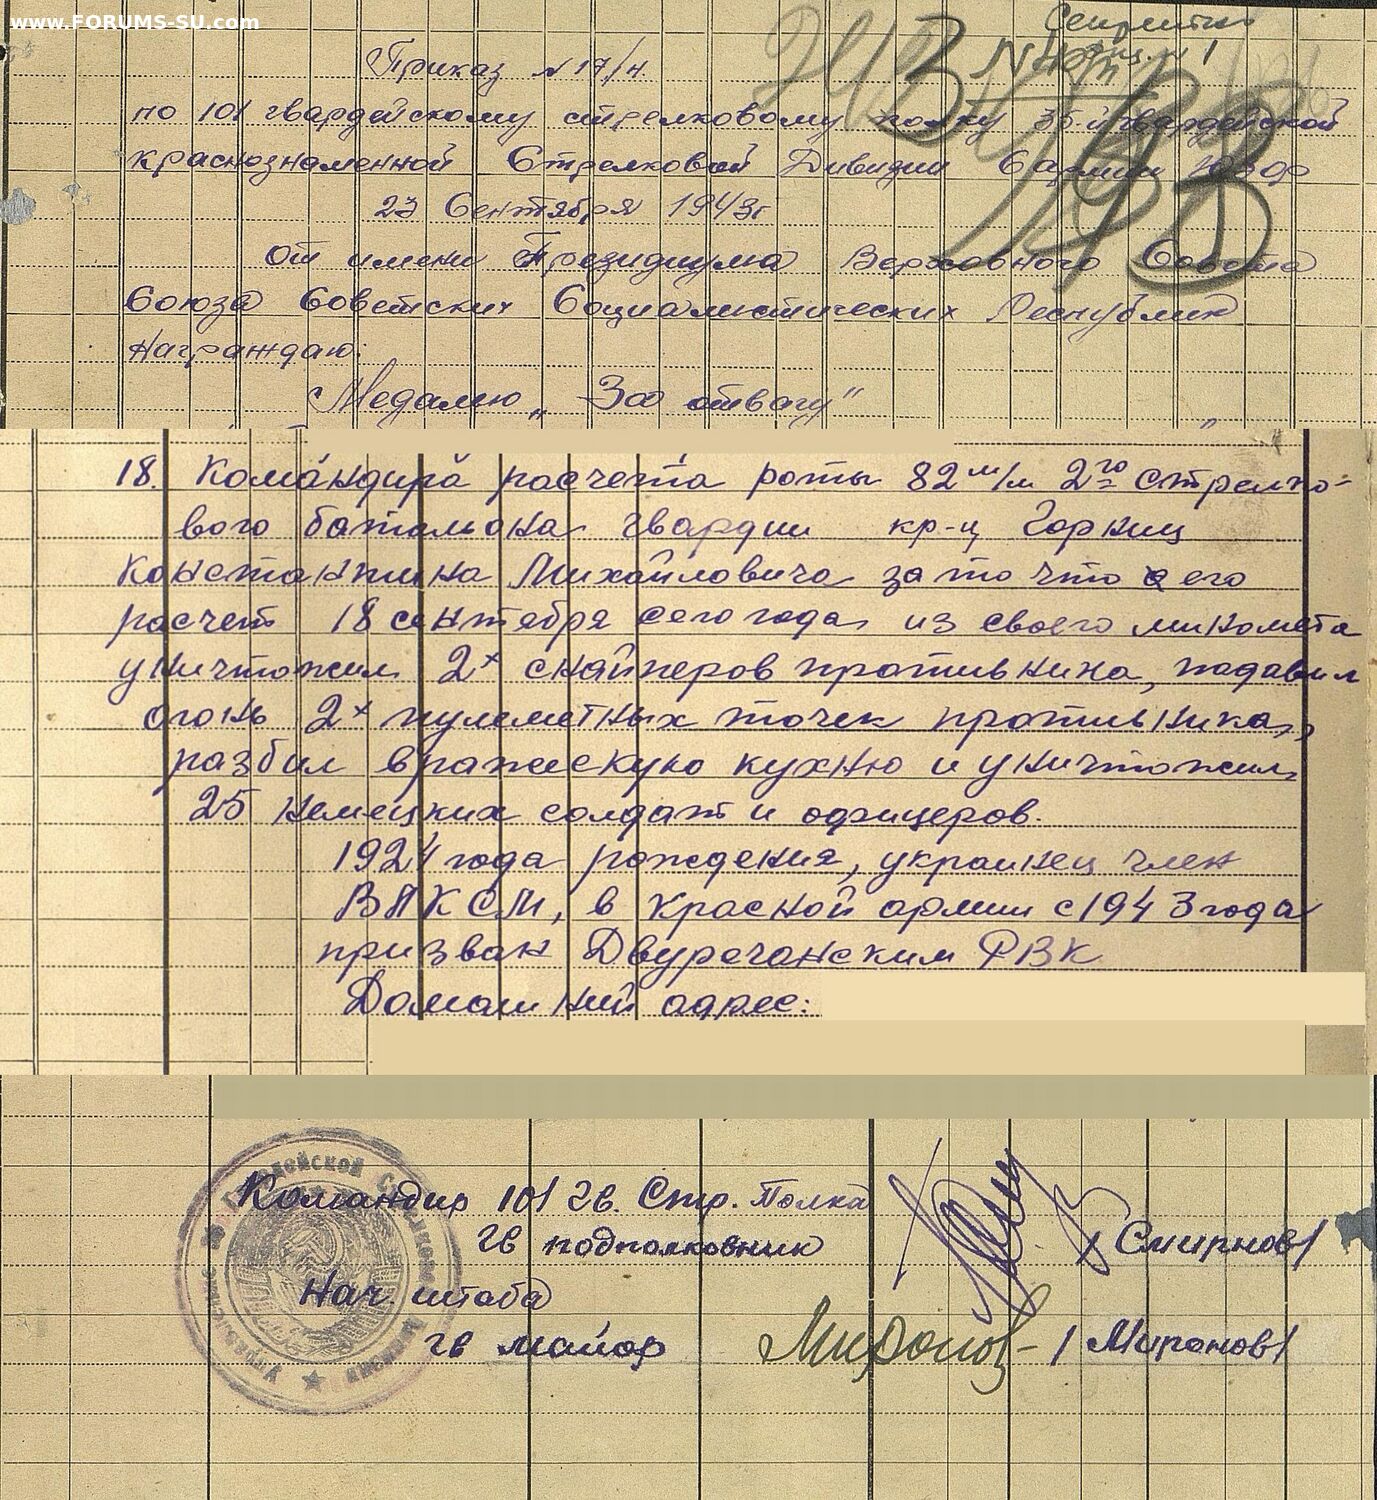 www.FORUMS-SU.com
Секретно
Экз. № 1
Приказ № 17/н.
по 101 гвардейскому стрелковому полку 35-й гвардейской
краснознаменной Стрелковой Дивизии 6 армии ЮЗФ
23 Сентября 1943г
От имени Президиума Верховного Совета
Союза Советских Социалистических Республик
Награждаю:
Медалью „За отвагу"
18. Командира расчета роты 82 м/м 2го стрелко-
вого батальона гвардии кр-ц Горкиц
Константина Михайловича за то что его
расчет 18 сентября сего года из своего миномета
уничтожил 2х снайперов противника, подавил
огонь 2х пулеметных точек противника,
разбил вражескую кухню и уничтожил
25 немецких солдат и офицеров.
1924 года рождения, украинец член
ВЛКСМ, в красной армии с 1943 года
призван Двуречанским РВК
Домашний адрес:
Командир 101 Гв. Стр. Полка
Гв подполковник / Смирнов /
Нач штаба
Гв майор Миронов - / Миронов /